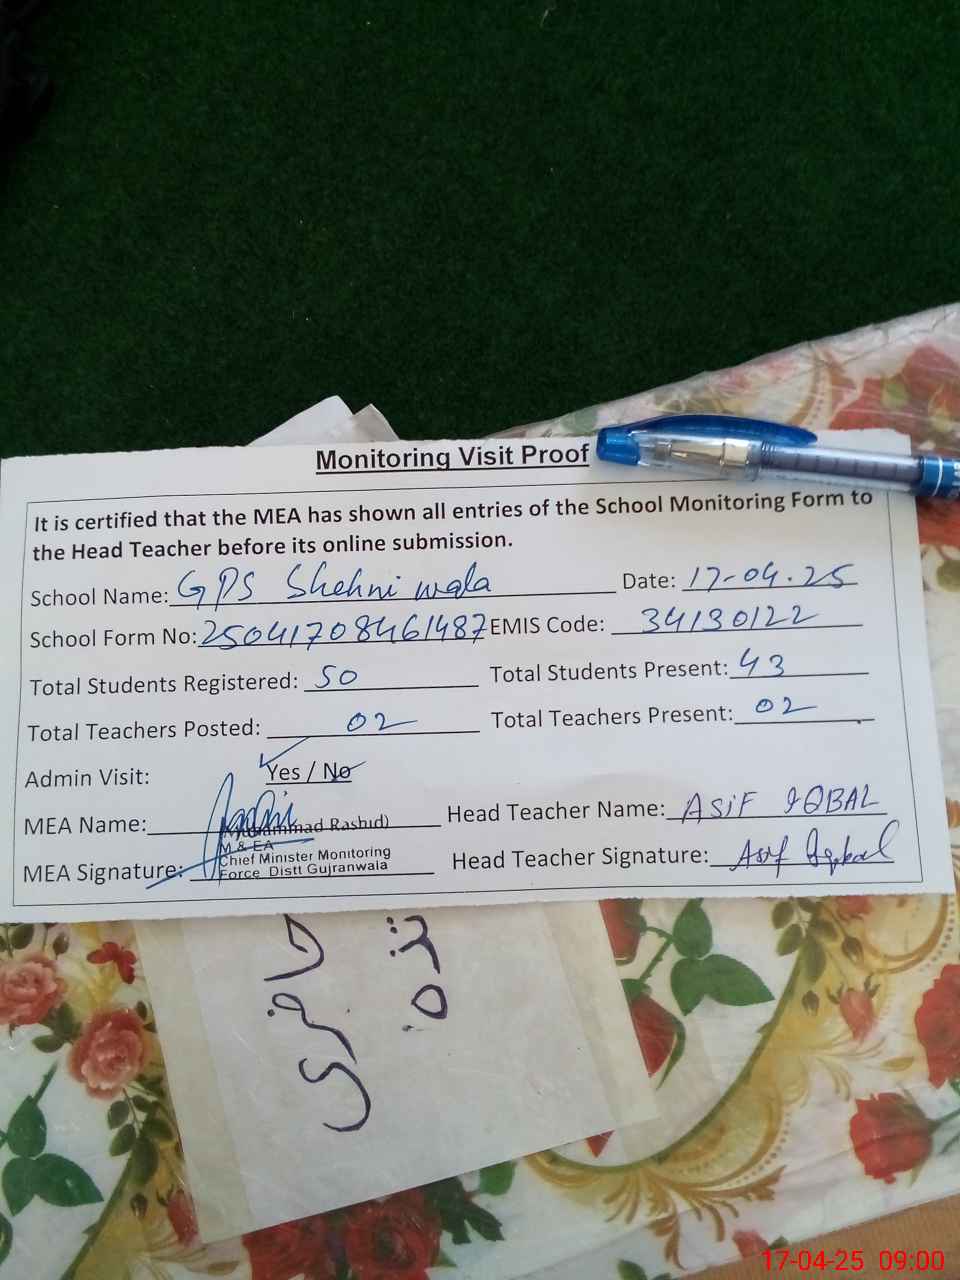 Monitoring Visit Proof
It is certified that the MEA has shown all entries of the School Monitoring Form to
the Head Teacher before its online submission.
School Name: GPS Shehni wala Date: 17-04-25
School Form No: 25041708461487 EMIS Code: 34130122
Total Students Registered: 50 Total Students Present: 43
Total Teachers Posted: 02 Total Teachers Present: 02
Admin Visit: Yes / No
MEA Name: (Muhammad Rashid) Head Teacher Name: ASIF IQBAL
M & EA
MEA Signature: Chief Minister Monitoring Head Teacher Signature: Asif Iqbal
Force Distt Gujranwala
حاضری
17-04-25 09:00